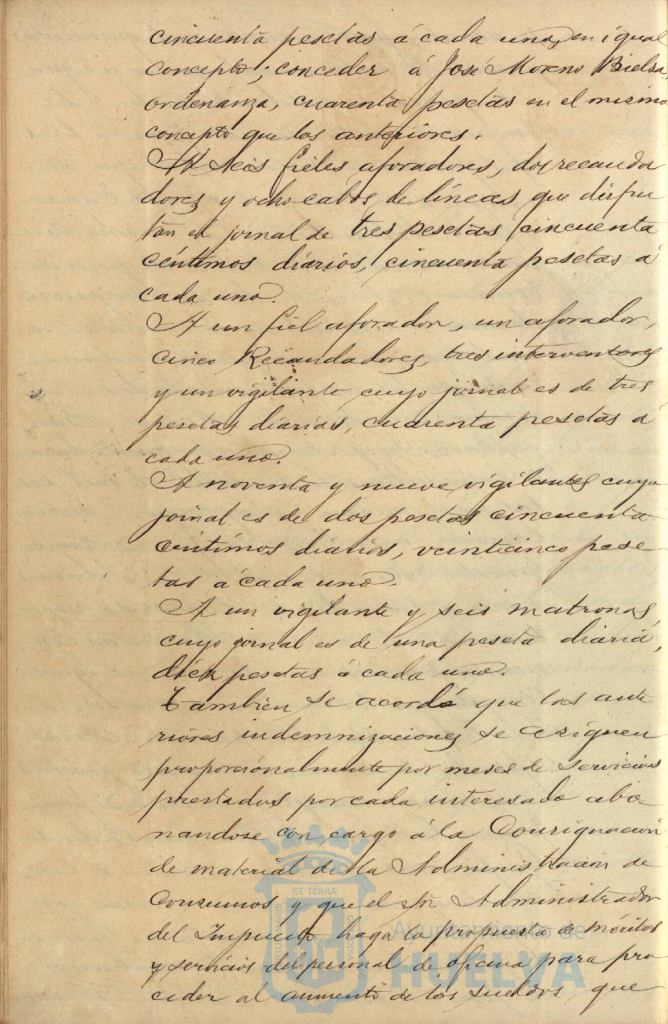 cincuenta pesetas á cada uno, en igual
concepto; conceder á José Moreno Bielsa,
ordenanza, cuarenta pesetas en el mismo
concepto que los anteriores.
A seis fieles aforadores, dos recauda
dores y ocho cabos de líneas que disfru
tan el jornal de tres pesetas cincuenta
céntimos diarios, cincuenta pesetas á
cada uno.
A un fiel aforador, un aforador,
cinco Recaudadores, tres interventores
y un vigilante cuyo jornal es de tres
pesetas diarias, cuarenta pesetas á
cada uno.
A noventa y nueve vigilantes cuyo
jornal es de dos pesetas cincuenta
centimos diarios, veinticinco pese
tas á cada uno.
A un vigilante y seis matronas,
cuyo jornal es de una peseta diaria,
diez pesetas á cada uno.
Tambien se acordó que las ante
riores indemnizaciones se asignen
proporcionalmente por meses de servicios
prestados por cada interesado abo
nandose con cargo á la Consignación
de material de la Administración de
Consumos y que el Sr. Administrador
del Impuesto haga la propuesta de méritos
y servicios del personal de oficina para pro
ceder al aumento de los sueldos que
ET TERRÆ
Ayuntamiento de
HUELVA